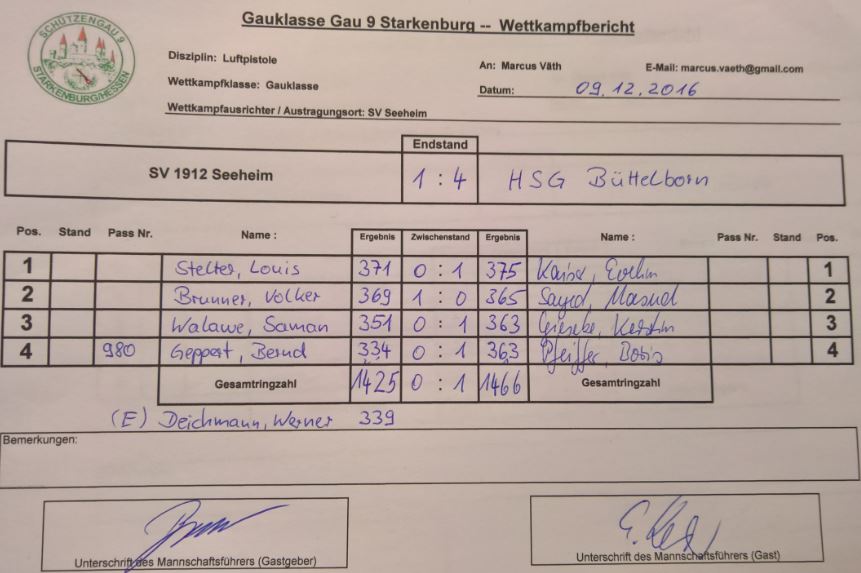 Gauklasse Gau 9 Starkenburg -- Wettkampfbericht
SCHÜTZENGAU 9
STARKENBURG/HESSEN
Disziplin: Luftpistole
An: Marcus Väth
E-Mail: marcus.vaeth@gmail.com
Wettkampfklasse: Gauklasse
Datum: 09.12.2016
Wettkampfausrichter / Austragungsort: SV Seeheim
Endstand
SV 1912 Seeheim 1 : 4 HSG Büttelborn
Pos. Stand Pass Nr. Name : Ergebnis Zwischenstand Ergebnis Name : Pass Nr. Stand Pos.
1 Stelter, Louis 371 0 : 1 375 1
2 Brunner, Volker 369 1 : 0 365 Sayed, Masud 2
3 Walawe, Saman 351 0 : 1 363 Kerstin 3
4 980 Geppert, Bernd 334 0 : 1 363 Pfeiffer, Boris 4
Gesamtringzahl 1425 0 : 1 1466 Gesamtringzahl
(E) Deichmann, Werner 339
Bemerkungen:
Unterschrift des Mannschaftsführers (Gastgeber)
Unterschrift des Mannschaftsführers (Gast)